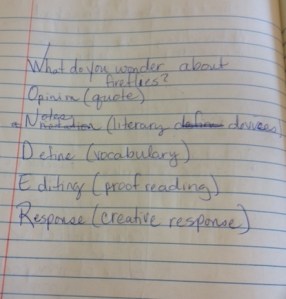 What do you wonder about
fireflies?
Opinion (quote)
Notes
(literary devices)
Define (vocabulary)
Editing (proof reading)
Response (creative response)